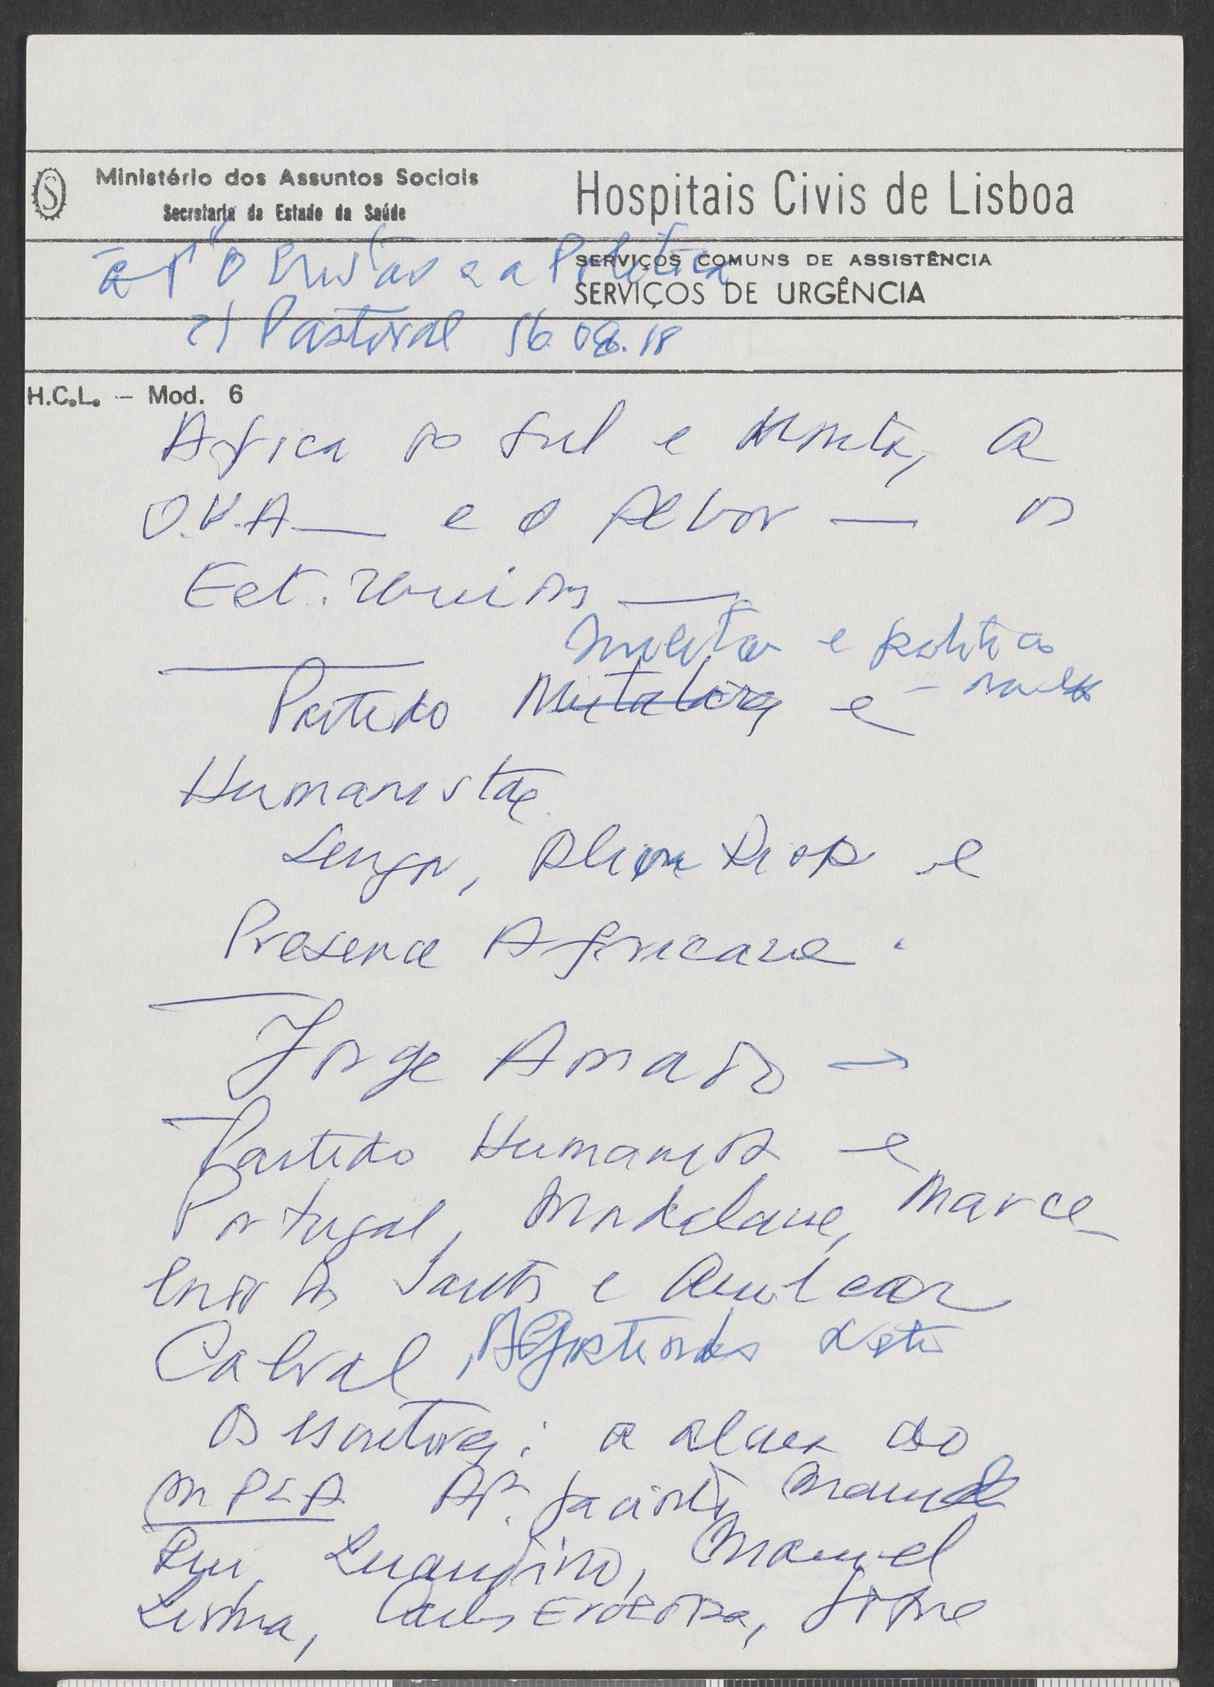 Ministério dos Assuntos Sociais
Secretaria de Estado da Saúde
Hospitais Civis de Lisboa
SERVIÇOS COMUNS DE ASSISTÊNCIA
SERVIÇOS DE URGÊNCIA
O Cristão e a Política
2) Pastoral 16.08.18
H.C.L. — Mod. 6
Africa do Sul e a
O.U.A — e o — os
Est. Unidos —
Militar e politico
Partido Militar e
Humanista
Sengor, Alioune Diop e
Presence Africaine.
Jorge Amado →
Partido Humanista e
Portugal, Mondelane, Marce
lino dos Santos e Amilcar
Cabral, Agostinho Neto
Os escritores: a alma do
MPLA Ap. Jacinto, Manuel
Rui, Luandino, Manuel
Lima, Carlos Ervedosa,